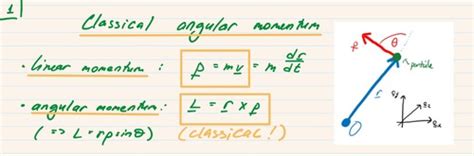 1
Classical angular momentum
• linear momentum : p = m v = m dr/dt
• angular momentum : L = r × p
(=> L = rp sin θ) (classical!)
p
θ
particle
r
O